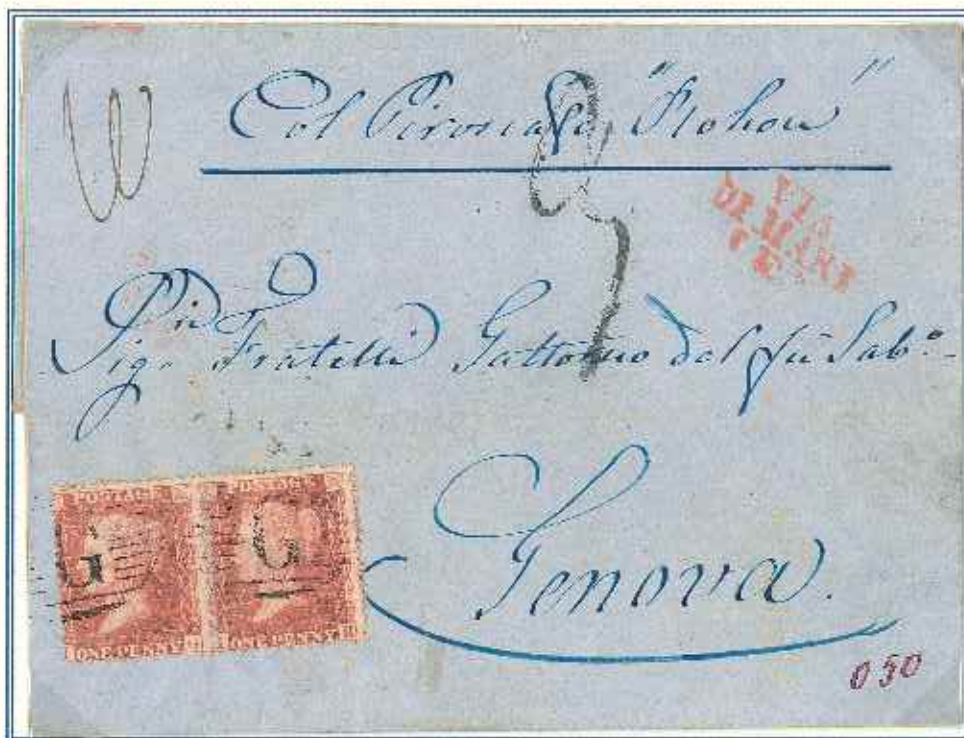 Col Piroscafo "Rohou"
VIA
DI MARE
Sigri Fratelli Gattorno del fu Sabo
Genova.
POSTAGE POSTAGE
G G
ONE PENNY ONE PENNY
050